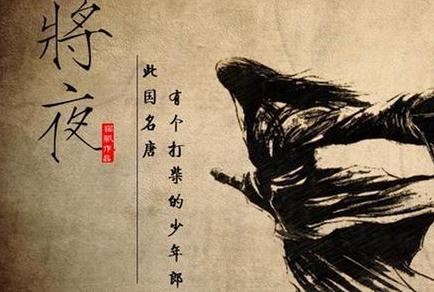 將夜
猫腻作品
此国名唐
有个打柴的少年郎